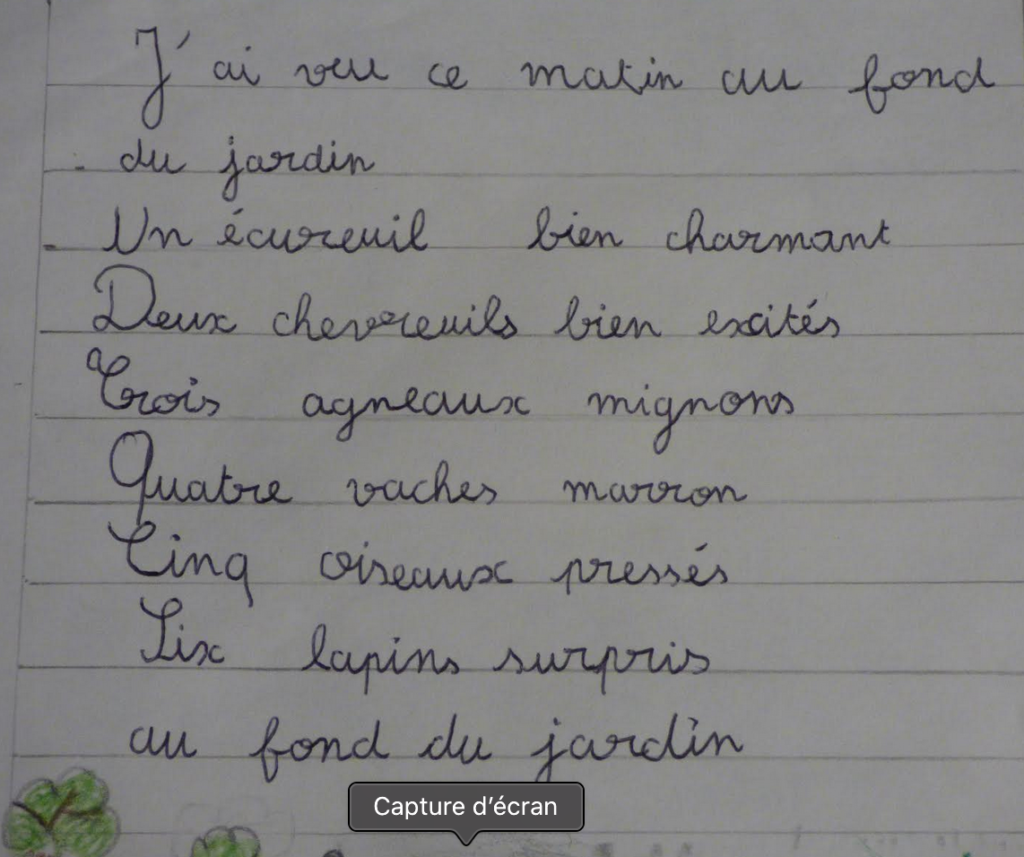 J'ai vu ce matin au fond
du jardin
Un écureuil bien charmant
Deux chevreuils bien excités
Trois agneaux mignons
Quatre vaches marron
Cinq oiseaux pressés
Six lapins surpris
au fond du jardin
Capture d’écran